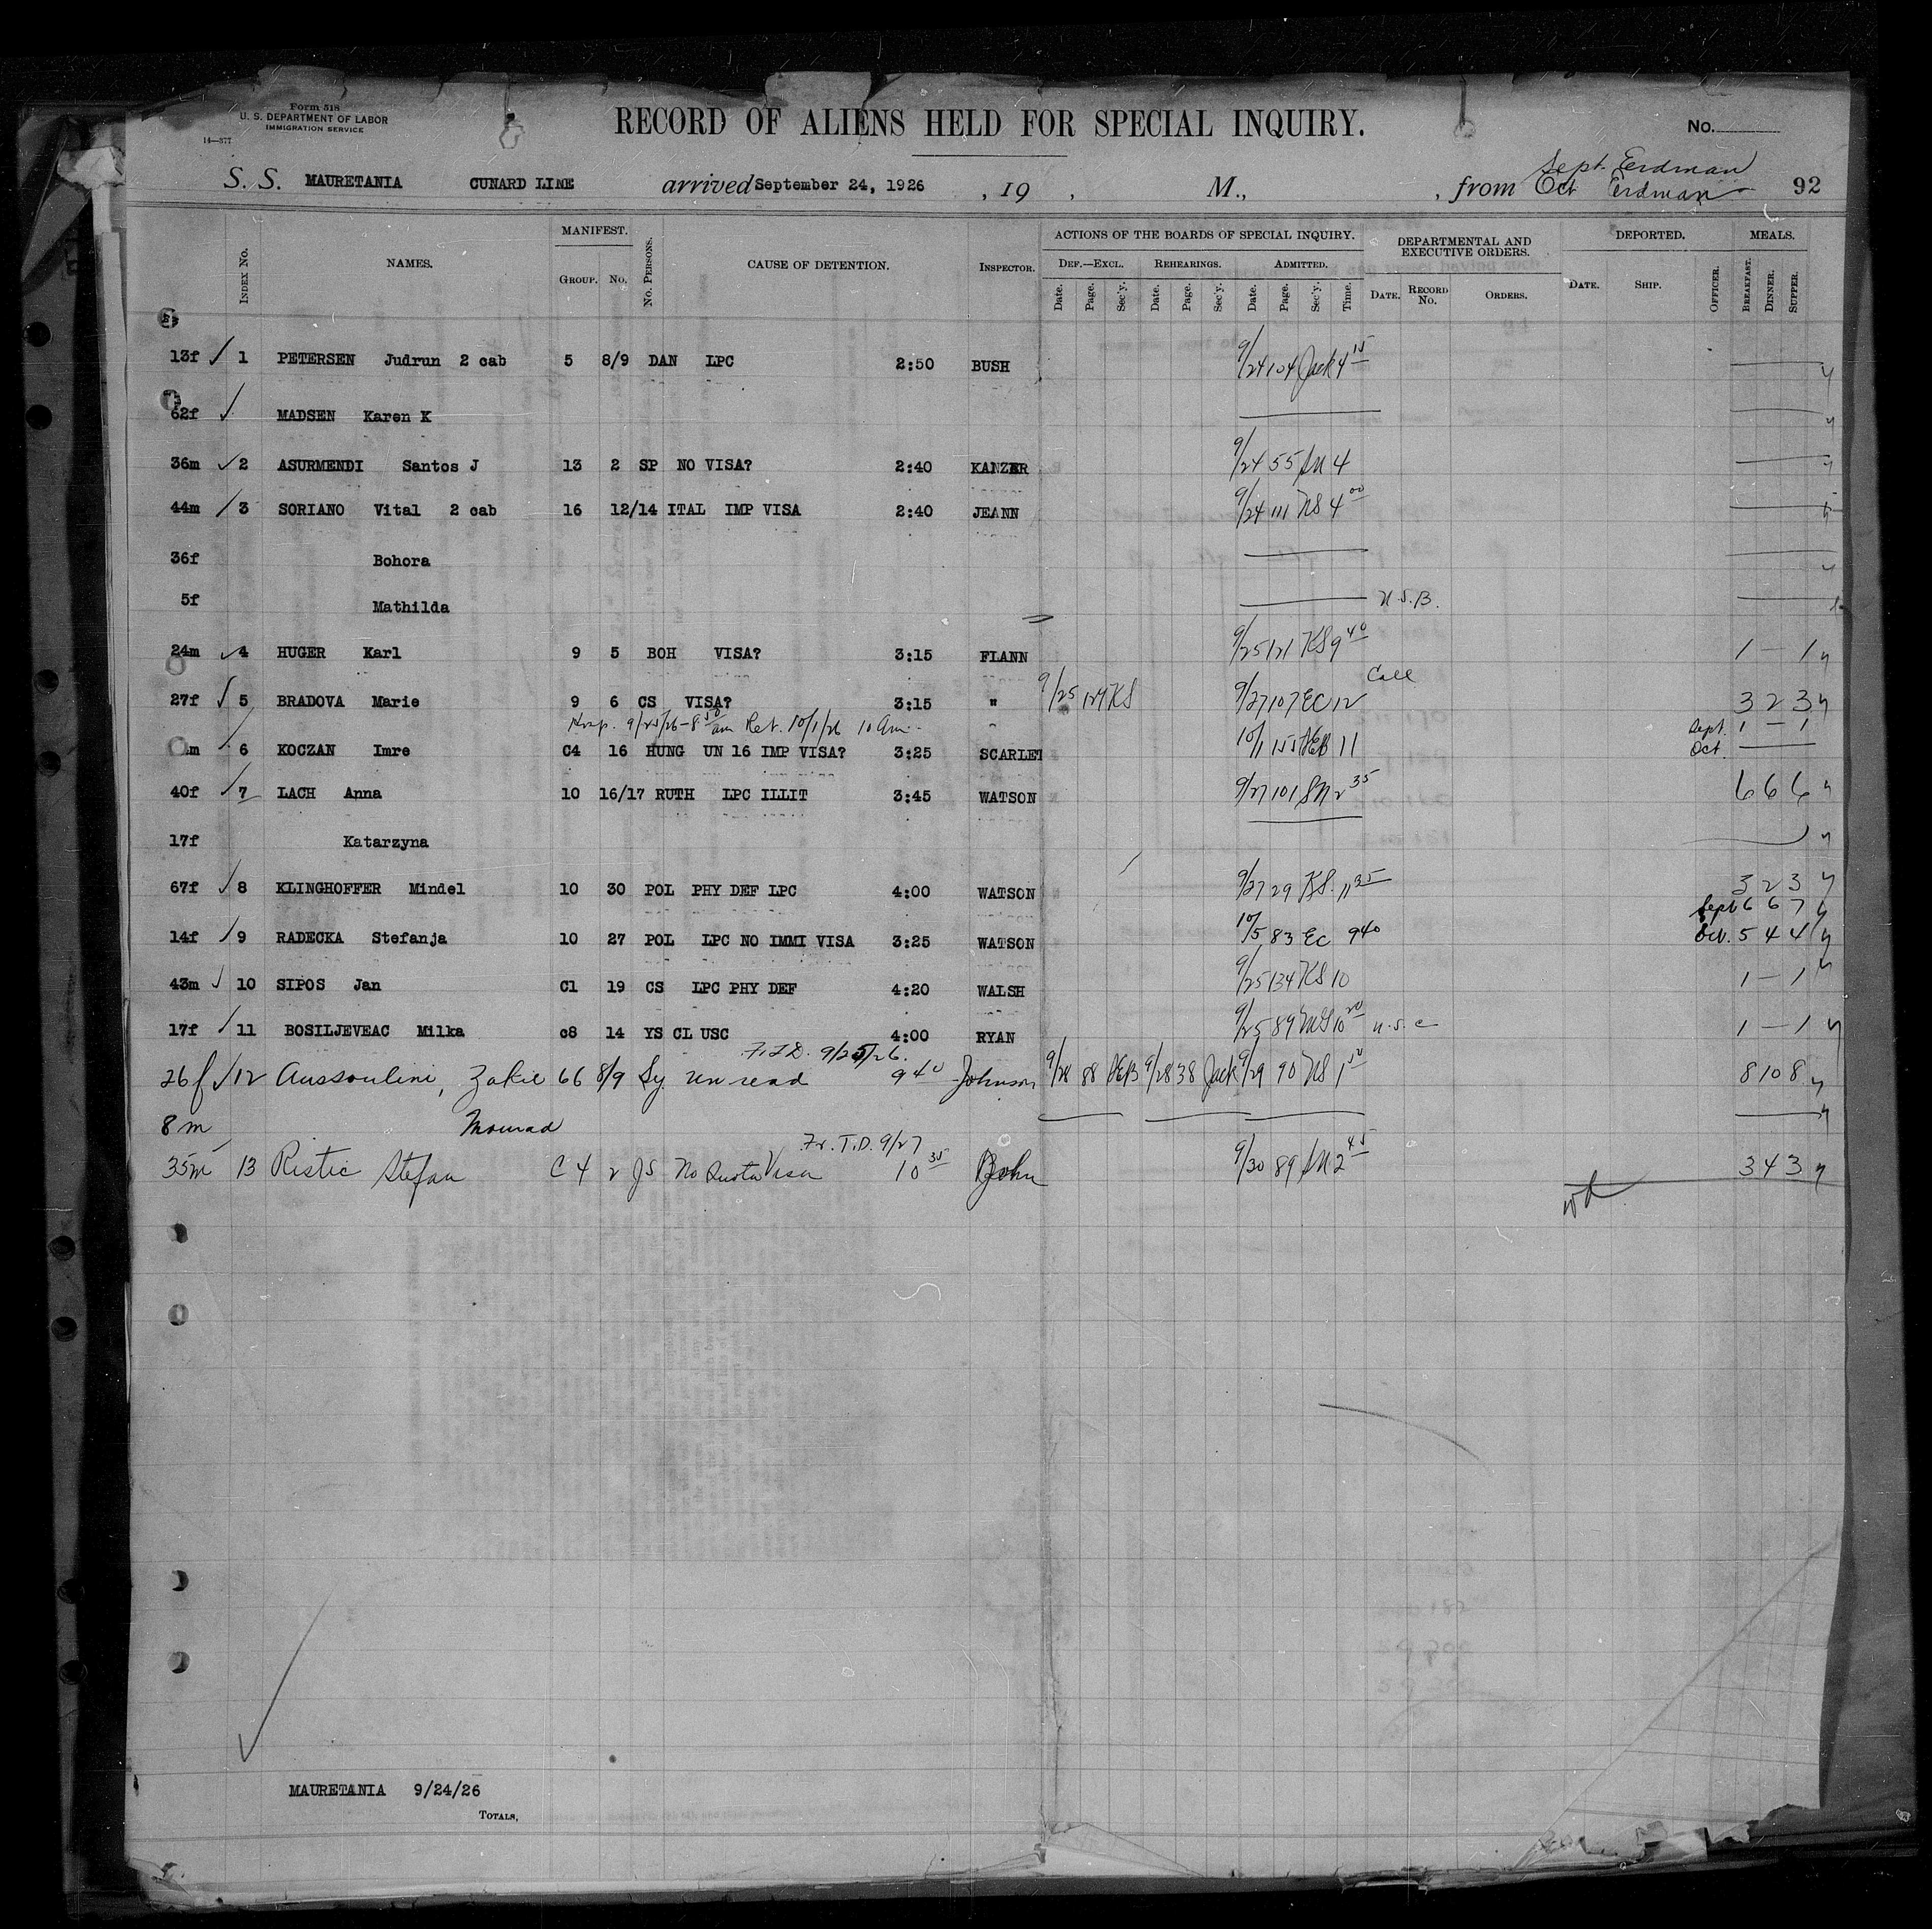 Form 518
U. S. DEPARTMENT OF LABOR
IMMIGRATION SERVICE
14—377
RECORD OF ALIENS HELD FOR SPECIAL INQUIRY.
No.
Sept. Eerdman
S. S. MAURETANIA CUNARD LINE arrived September 24, 1926 , 19 , M., , from Oct Erdman 92
INDEX No. NAMES. MANIFEST. GROUP. No. No. PERSONS. CAUSE OF DETENTION. INSPECTOR. ACTIONS OF THE BOARDS OF SPECIAL INQUIRY. DEF.—EXCL. Date. Page. Sec'y. REHEARINGS. Date. Page. Sec'y. ADMITTED. Date. Page. Sec'y. Time. DEPARTMENTAL AND EXECUTIVE ORDERS. DATE. RECORD No. ORDERS. DEPORTED. DATE. SHIP. OFFICER. MEALS. BREAKFAST. DINNER. SUPPER.
13f 1 PETERSEN Judrun 2 cab 5 8/9 DAN LPC 2:50 BUSH 9/24 104 Jack 4 15
62f MADSEN Karen K
36m 2 ASURMENDI Santos J 13 2 SP NO VISA? 2:40 KANZER 9/24 55 SN 4
44m 3 SORIANO Vital 2 cab 16 12/14 ITAL IMP VISA 2:40 JEANN 9/24 111 NS 4 00
36f Bohora
5f Mathilda U.S.B.
24m 4 HUGER Karl 9 5 BOH VISA? 3:15 FLANN 9/25 121 KS 9 40 1 — 1
Call
27f 5 BRADOVA Marie 9 6 CS VISA? 3:15 " 9/25 124 KS 9/27 107 EC 12 3 2 3
Hosp. 9/25/26 - 8 50 am Ret. 10/1/26 10 am. Sept. 1 — 1
m 6 KOCZAN Imre C4 16 HUNG UN 16 IMP VISA? 3:25 SCARLET 10/1 155 HEB 11 Oct.
40f 7 LACH Anna 10 16/17 RUTH LPC ILLIT 3:45 WATSON 9/27 101 SN 2 35 6 6 6
17f Katarzyna
67f 8 KLINGHOFFER Mindel 10 30 POL PHY DEF LPC 4:00 WATSON 9/27 29 KS. 11 35 3 2 3
Sept 6 6 7
14f 9 RADECKA Stefanja 10 27 POL LPC NO IMMI VISA 3:25 WATSON 10/5 83 EC 9 40 Oct. 5 4 4
43m 10 SIPOS Jan C1 19 CS LPC PHY DEF 4:20 WALSH 9/25 134 KS 10 1 — 1
17f 11 BOSILJEVEAC Milka c8 14 YS CL USC 4:00 RYAN 9/25 89 10 20 U.S.C 1 — 1
F.T.D. 9/25/26.
26f 12 Aussoulini, Zakie 66 8/9 Sy un read 9 40 Johnson 9/26 88 HEB 9/28 38 Jack 9/29 90 NS 1 50 8 10 8
8m Mourad
Fr. T.D. 9/27
35m 13 Ristic Stefan C4 2 JS No Quota Visa 10 35 John 9/30 89 SN 2 45 3 4 3
MAURETANIA 9/24/26
TOTALS,